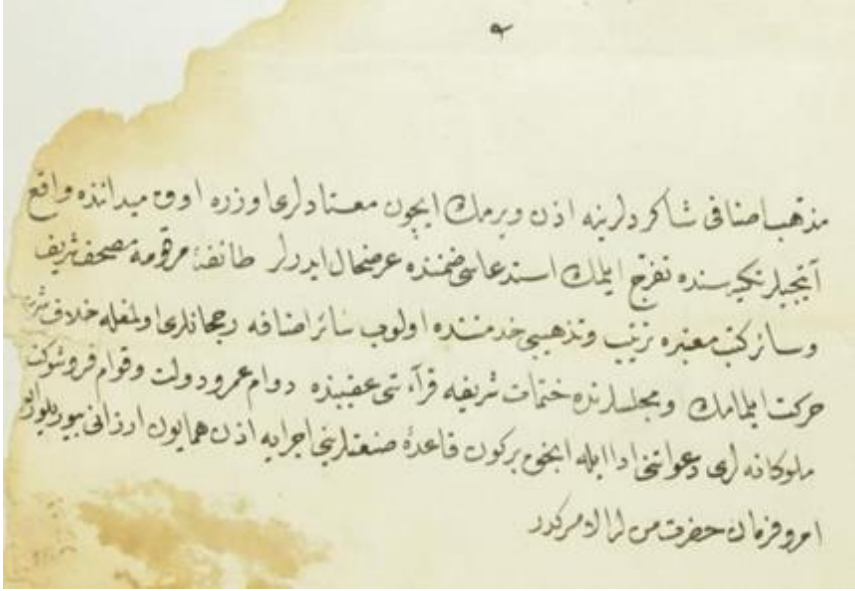 مذهب اصنافی شاکردلرینه اذن ویرمك ایچون معتادلری اوزره اوق میداننده واقع
آتیجیلر تکیه‌سنده تفرّج ایلمك استدعاسی ضمننده عرضحال ایدرلر طائفهٔ مرقومه مصحف شریف
و سائر کتب معتبره تزیین و تذهیبی خدمتنده اولوب سائر اصنافه رجحانلری اولمغله خلاف
حرکت ایلمامك و مجلسلرنده ختمات شریفه قرآءتی عقیبنده دوام عمر و دولت و قوام فر و شوکت
ملوکانه لری دعواتنی ادا ایله انجق برکون قاعدهٔ صنعتلرینی اجرایه اذن همایون ارزانی بیوریلور
امر و فرمان حضرت من له الامرکدر